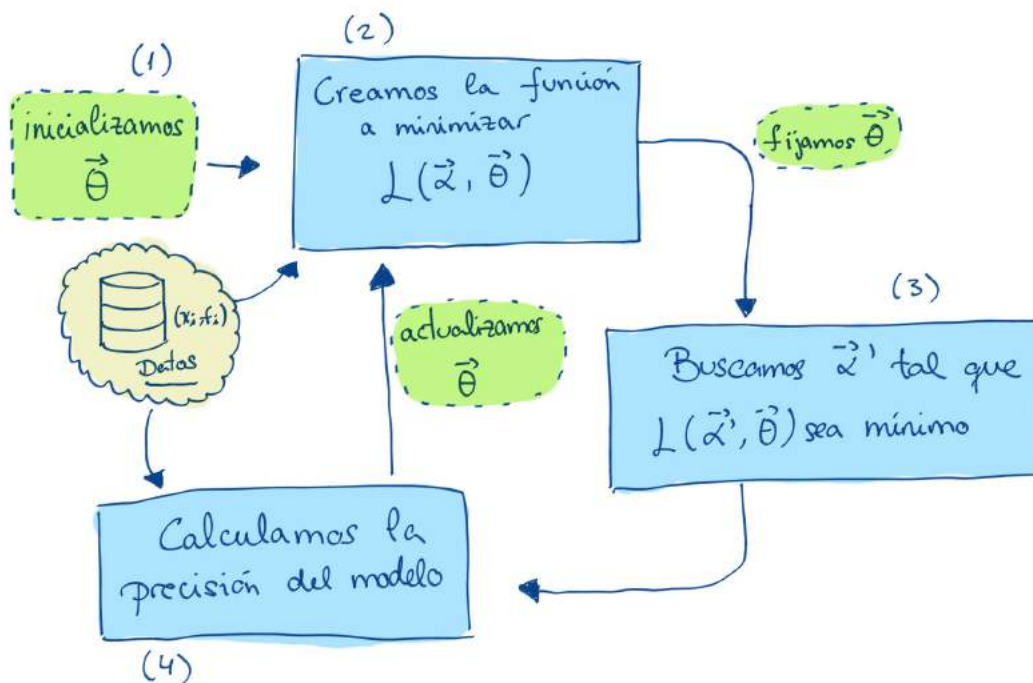 (1)
inicializamos
θ⃗
(2)
Creamos la función
a minimizar
L(α⃗, θ⃗)
fijamos θ⃗
(xᵢ, fᵢ)
Datos
actualizamos
θ⃗
(3)
Buscamos α⃗' tal que
L(α⃗', θ⃗) sea mínimo
Calculamos la
precisión del modelo
(4)